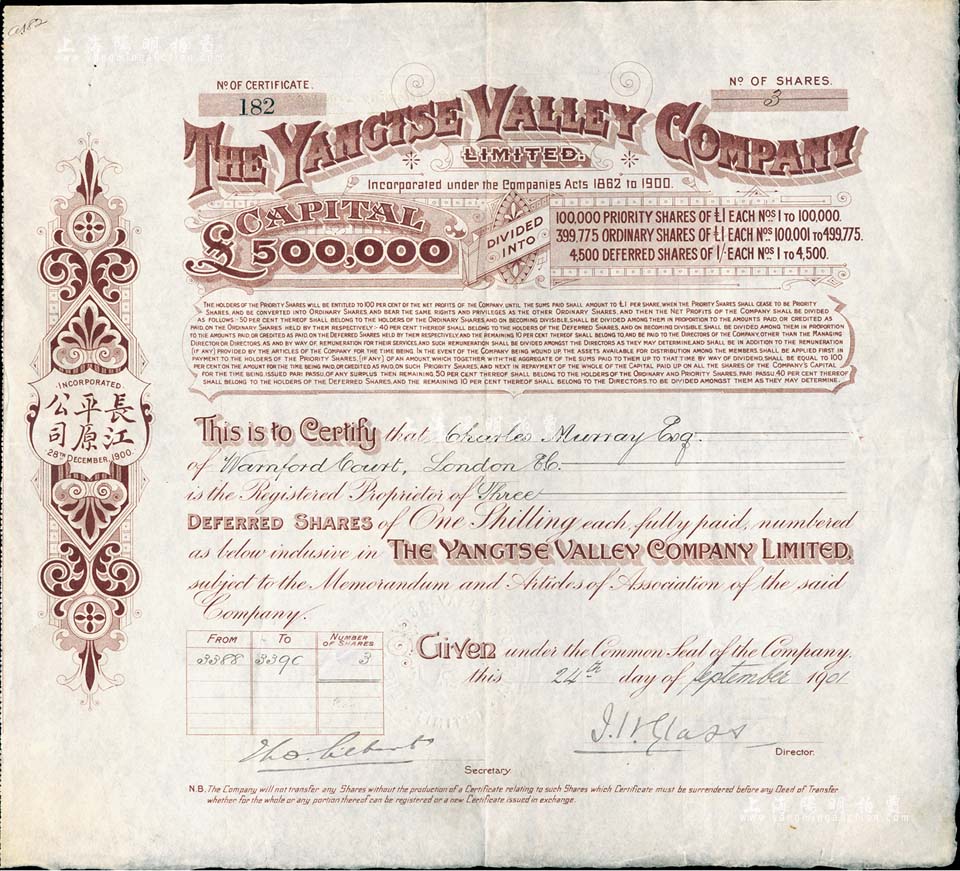 Ctf 182
上海陽明拍賣
www.yangmingauction.com
No OF CERTIFICATE.
182
No OF SHARES.
3
THE YANGTSE VALLEY COMPANY
LIMITED.
Incorporated under the Companies Acts 1862 to 1900.
CAPITAL
£500,000
DIVIDED
INTO
100,000 PRIORITY SHARES OF £1 EACH Nos 1 TO 100,000.
399,775 ORDINARY SHARES OF £1 EACH Nos 100,001 TO 499,775.
4,500 DEFERRED SHARES OF 1/- EACH Nos 1 TO 4,500.
THE HOLDERS OF THE PRIORITY SHARES WILL BE ENTITLED TO 100 PER CENT OF THE NET PROFITS OF THE COMPANY, UNTIL THE SUMS PAID SHALL AMOUNT TO £1 PER SHARE, WHEN THE PRIORITY SHARES SHALL CEASE TO BE PRIORITY
SHARES, AND BE CONVERTED INTO ORDINARY SHARES, AND BEAR THE SAME RIGHTS AND PRIVILEGES AS THE OTHER ORDINARY SHARES, AND THEN THE NET PROFITS OF THE COMPANY SHALL BE DIVIDED
AS FOLLOWS:- 50 PER CENT THEREOF SHALL BELONG TO THE HOLDERS OF THE ORDINARY SHARES, AND ON BECOMING DIVISIBLE, SHALL BE DIVIDED AMONG THEM IN PROPORTION TO THE AMOUNTS PAID, OR CREDITED AS
PAID, ON THE ORDINARY SHARES HELD BY THEM RESPECTIVELY:- 40 PER CENT THEREOF SHALL BELONG TO THE HOLDERS OF THE DEFERRED SHARES, AND ON BECOMING DIVISIBLE, SHALL BE DIVIDED AMONG THEM IN PROPORTION
TO THE AMOUNTS PAID, OR CREDITED AS PAID, ON THE DEFERRED SHARES HELD BY THEM RESPECTIVELY, AND THE REMAINING 10 PER CENT THEREOF SHALL BELONG TO, AND BE PAID TO THE DIRECTORS OF THE COMPANY, OTHER THAN THE MANAGING
DIRECTOR OR DIRECTORS, AS AND BY WAY OF REMUNERATION FOR THEIR SERVICES, AND SUCH REMUNERATION SHALL BE DIVIDED AMONGST THE DIRECTORS AS THEY MAY DETERMINE, AND SHALL BE IN ADDITION TO THE REMUNERATION
(IF ANY) PROVIDED BY THE ARTICLES OF THE COMPANY FOR THE TIME BEING. IN THE EVENT OF THE COMPANY BEING WOUND UP, THE ASSETS AVAILABLE FOR DISTRIBUTION AMONG THE MEMBERS SHALL BE APPLIED FIRST IN
PAYMENT TO THE HOLDERS OF THE PRIORITY SHARES, (IF ANY) OF AN AMOUNT, WHICH TOGETHER WITH THE AGGREGATE OF THE SUMS PAID TO THEM UP TO THAT TIME BY WAY OF DIVIDEND, SHALL BE EQUAL TO 100
PER CENT ON THE AMOUNT FOR THE TIME BEING PAID, OR CREDITED AS PAID, ON SUCH PRIORITY SHARES, AND NEXT IN REPAYMENT OF THE WHOLE OF THE CAPITAL PAID UP ON ALL THE SHARES OF THE COMPANY'S CAPITAL
FOR THE TIME BEING ISSUED PARI PASSU, OF ANY SURPLUS THEN REMAINING 50 PER CENT THEREOF SHALL BELONG TO THE HOLDERS OF THE ORDINARY AND PRIORITY SHARES, PARI PASSU, 40 PER CENT THEREOF
SHALL BELONG TO THE HOLDERS OF THE DEFERRED SHARES, AND THE REMAINING 10 PER CENT THEREOF SHALL BELONG TO THE DIRECTORS, TO BE DIVIDED AMONGST THEM AS THEY MAY DETERMINE.
·INCORPORATED·
長江
平原
公司
·28TH DECEMBER, 1900.·
This is to Certify that Charles Murray Esq.
of Warnford Court, London E.C.
is the Registered Proprietor of Three
DEFERRED SHARES of One Shilling each, fully paid, numbered
as below inclusive in THE YANGTSE VALLEY COMPANY LIMITED,
subject to the Memorandum and Articles of Association of the said
Company.
FROM TO NUMBER OF SHARES
3388 3390 3
Given under the Common Seal of the Company,
this 24th day of September 1901
J.W. Glass
Director.
Tho. Gilbert
Secretary.
N.B. The Company will not transfer any Shares without the production of a Certificate relating to such Shares which Certificate must be surrendered before any Deed of Transfer
whether for the whole or any portion thereof can be registered or a new Certificate issued in exchange.
上海陽明拍賣
www.yangmingauction.com